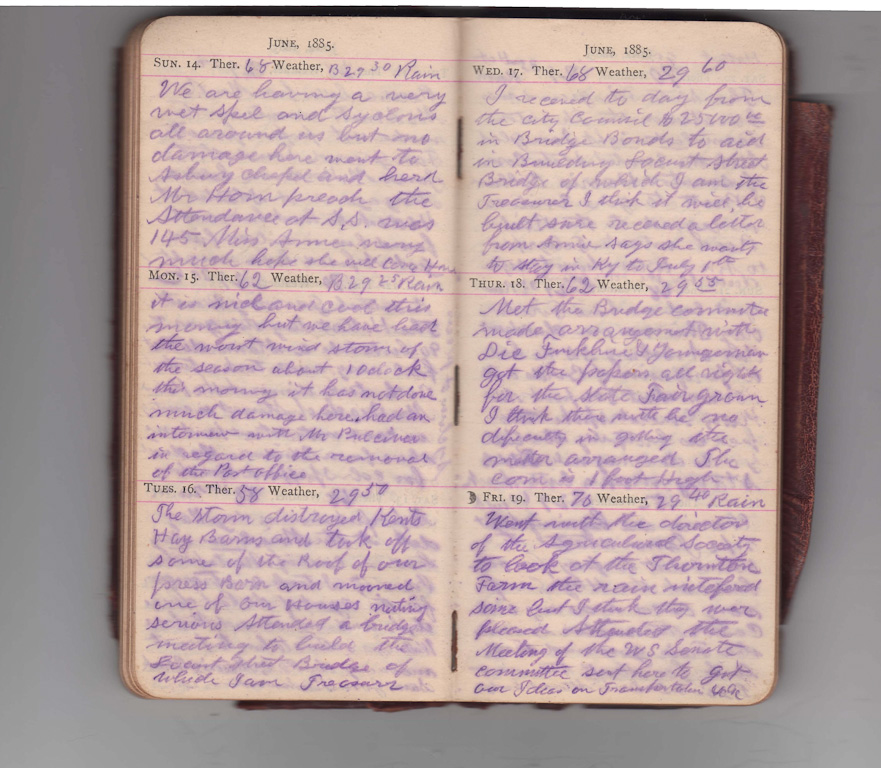 JUNE, 1885.
SUN. 14. Ther. 68 Weather, B 29 30 Rain
We are having a very
wet spel and syclons
all around us but no
damage here went to
Asbury chapel and herd
Mr Horn preach the
Attendance at S.S. was
145. Miss Annie very
much hope she will Come Home
MON. 15. Ther. 62 Weather, B 29 25 Rain
it is nice and cool this
morning but we have had
the worst wind storm of
the season about 10 oclock
this morning it has not done
much damage here. had an
interview with Mr
in regard to the removal
of the Post office
TUES. 16. Ther. 58 Weather, 29 50
The storm distroyed Kents
Hay Barns and took off
some of the Roof of our
press Barn and mooved
one of our Houses nuting
serious Attended a bridge
meeting to build the
Locust Street Bridge of
which I am Treasurr
JUNE, 1885.
WED. 17. Ther. 68 Weather, 29 60
I receved to day from
the city Council $25000 00
in Bridge Bonds to aid
in Building Locust Street
Bridge of which I am the
Treasurer I think it will be
built sure receved a letter
from Annie says she wants
to stay in Ky to July 1st
THUR. 18. Ther. 62 Weather, 29 55
Met the Bridge committe
made arrangemet with
Finkbine & Youngeman
got the papers all right
for the State Fair groun
I think there will be no
dificulty in getting the
matter arranged The
corn is 1 foot High
FRI. 19. Ther. 70 Weather, 29 40 Rain
Went with the director
of the Agricultural Society
to look at the Thornton
Farm the rain inteferd
some but I think they wer
pleased Attended the
Meeting of the US Senate
committee sent here to get
our Ideas on Transportation